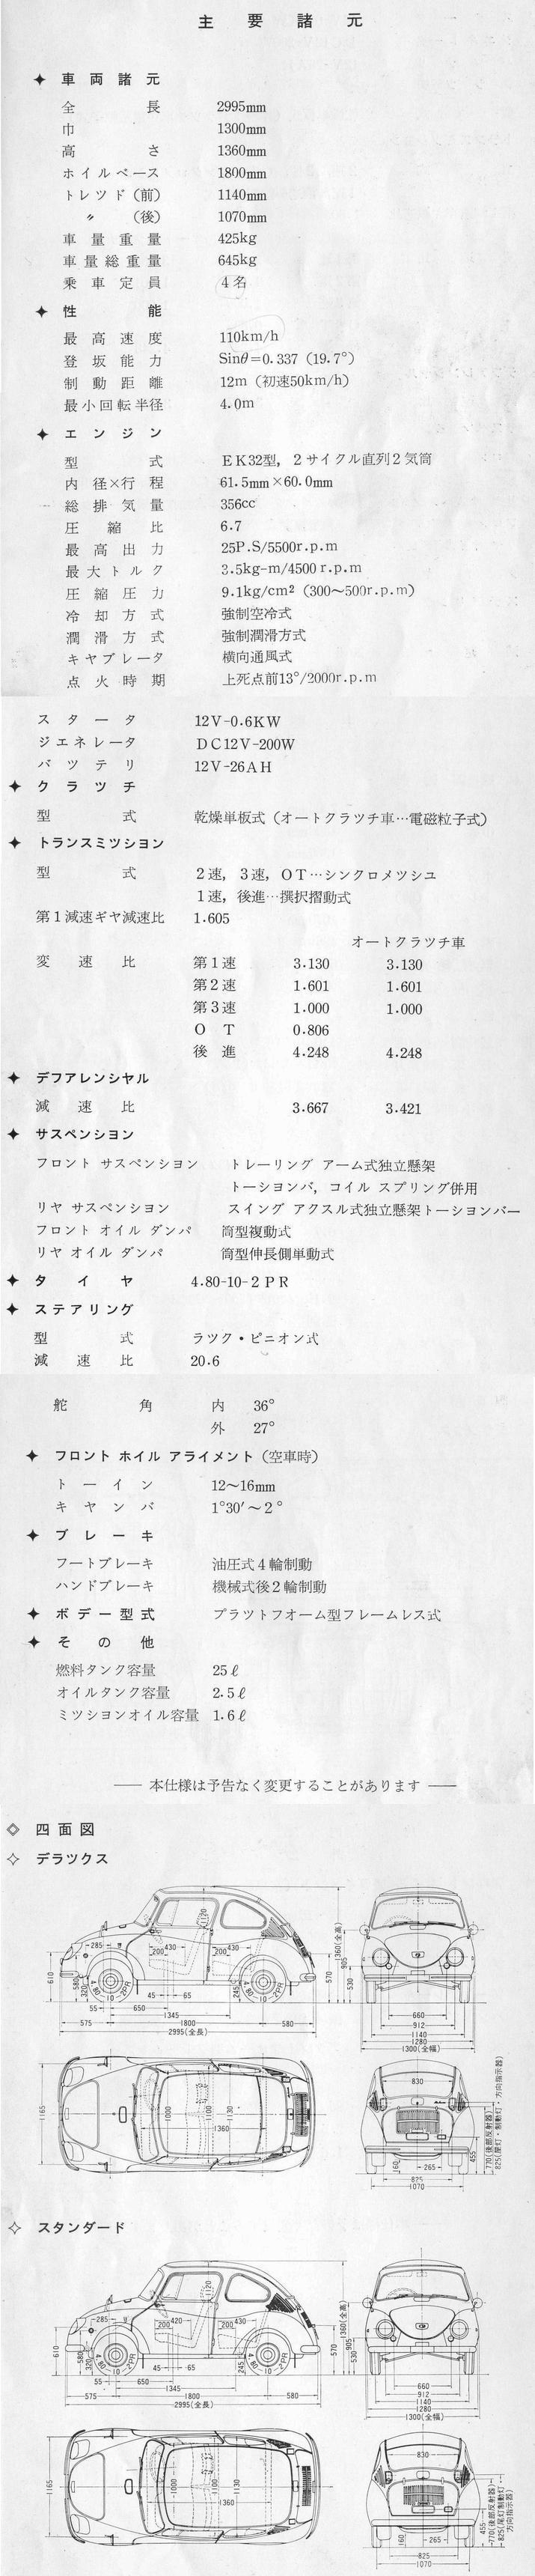 主要諸元
✦ 車両諸元
全長 2995mm
巾 1300mm
高さ 1360mm
ホイルベース 1800mm
トレツド(前) 1140mm
〃 (後) 1070mm
車量重量 425kg
車量総重量 645kg
乗車定員 4名
✦ 性能
最高速度 110km/h
登坂能力 Sinθ=0.337 (19.7°)
制動距離 12m (初速50km/h)
最小回転半径 4.0m
✦ エンジン
型式 EK32型, 2サイクル直列2気筒
内径×行程 61.5mm×60.0mm
総排気量 356cc
圧縮比 6.7
最高出力 25P.S/5500r.p.m
最大トルク 3.5kg-m/4500r.p.m
圧縮圧力 9.1kg/cm² (300〜500r.p.m)
冷却方式 強制空冷式
潤滑方式 強制潤滑方式
キヤブレータ 横向通風式
点火時期 上死点前13°/2000r.p.m
スタータ 12V-0.6KW
ジエネレータ DC12V-200W
バツテリ 12V-26AH
✦ クラツチ
型式 乾燥単板式 (オートクラツチ車…電磁粒子式)
✦ トランスミツシヨン
型式 2速, 3速, OT…シンクロメツシユ
1速, 後進…撰択摺動式
第1減速ギヤ減速比 1.605
オートクラツチ車
変速比 第1速 3.130 3.130
第2速 1.601 1.601
第3速 1.000 1.000
OT 0.806
後進 4.248 4.248
✦ デフアレンシヤル
減速比 3.667 3.421
✦ サスペンシヨン
フロント サスペンシヨン トレーリング アーム式独立懸架
トーシヨンバ, コイル スプリング併用
リヤ サスペンシヨン スイング アクスル式独立懸架トーシヨンバー
フロント オイル ダンパ 筒型複動式
リヤ オイル ダンパ 筒型伸長側単動式
✦ タイヤ 4.80-10-2PR
✦ ステアリング
型式 ラツク・ピニオン式
減速比 20.6
舵角 内 36°
外 27°
✦ フロント ホイル アライメント (空車時)
トーイン 12〜16mm
キヤンバ 1°30′〜2°
✦ ブレーキ
フートブレーキ 油圧式4輪制動
ハンドブレーキ 機械式後2輪制動
✦ ボデー型式 プラツトフオーム型フレームレス式
✦ その他
燃料タンク容量 25ℓ
オイルタンク容量 2.5ℓ
ミツシヨンオイル容量 1.6ℓ
── 本仕様は予告なく変更することがあります ──
◇ 四面図
✧ デラツクス
1120
285 200 430 200 430
610 580 320 4.80-10-2PR 245 570 530 905 1360(全高)
55 650 45 65
1345
575 1800 580
2995(全長)
660
912
1140
1280
1300(全幅)
1165 1000 1100 1130
1360
830
160 265 455
825
1070
770(後部反射器)
825(尾灯・制動灯・方向指示器)
✧ スタンダード
1120
285 200 420 200 430
610 580 320 4.80-10-2PR 245 570 530 905 1360(全高)
55 650 45 65
1345
575 1800 580
2995(全長)
660
912
1140
1280
1300(全幅)
1165 1000 1100 1130
1360
830
160 265 455
825
1070
770(後部反射器)
825(尾灯制動灯・方向指示器)